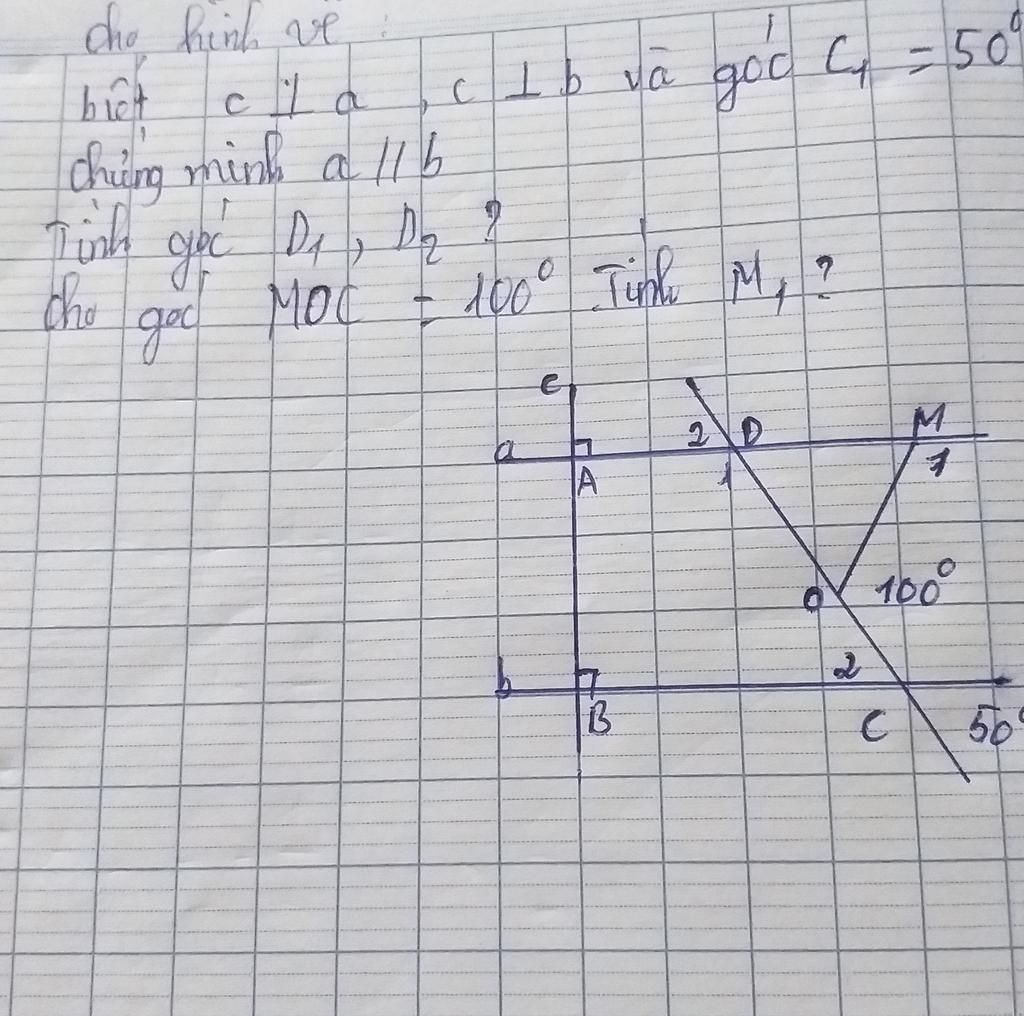 cho hình vẽ :
biết c ⊥ a , c ⊥ b và góc C₁ = 50⁰
chứng minh a // b
Tính góc D₁ , D₂ ?
cho góc MOC = 100⁰ Tính M₁ ?
c
a
A
2
D
1
M
1
O
100⁰
b
B
2
C
50⁰